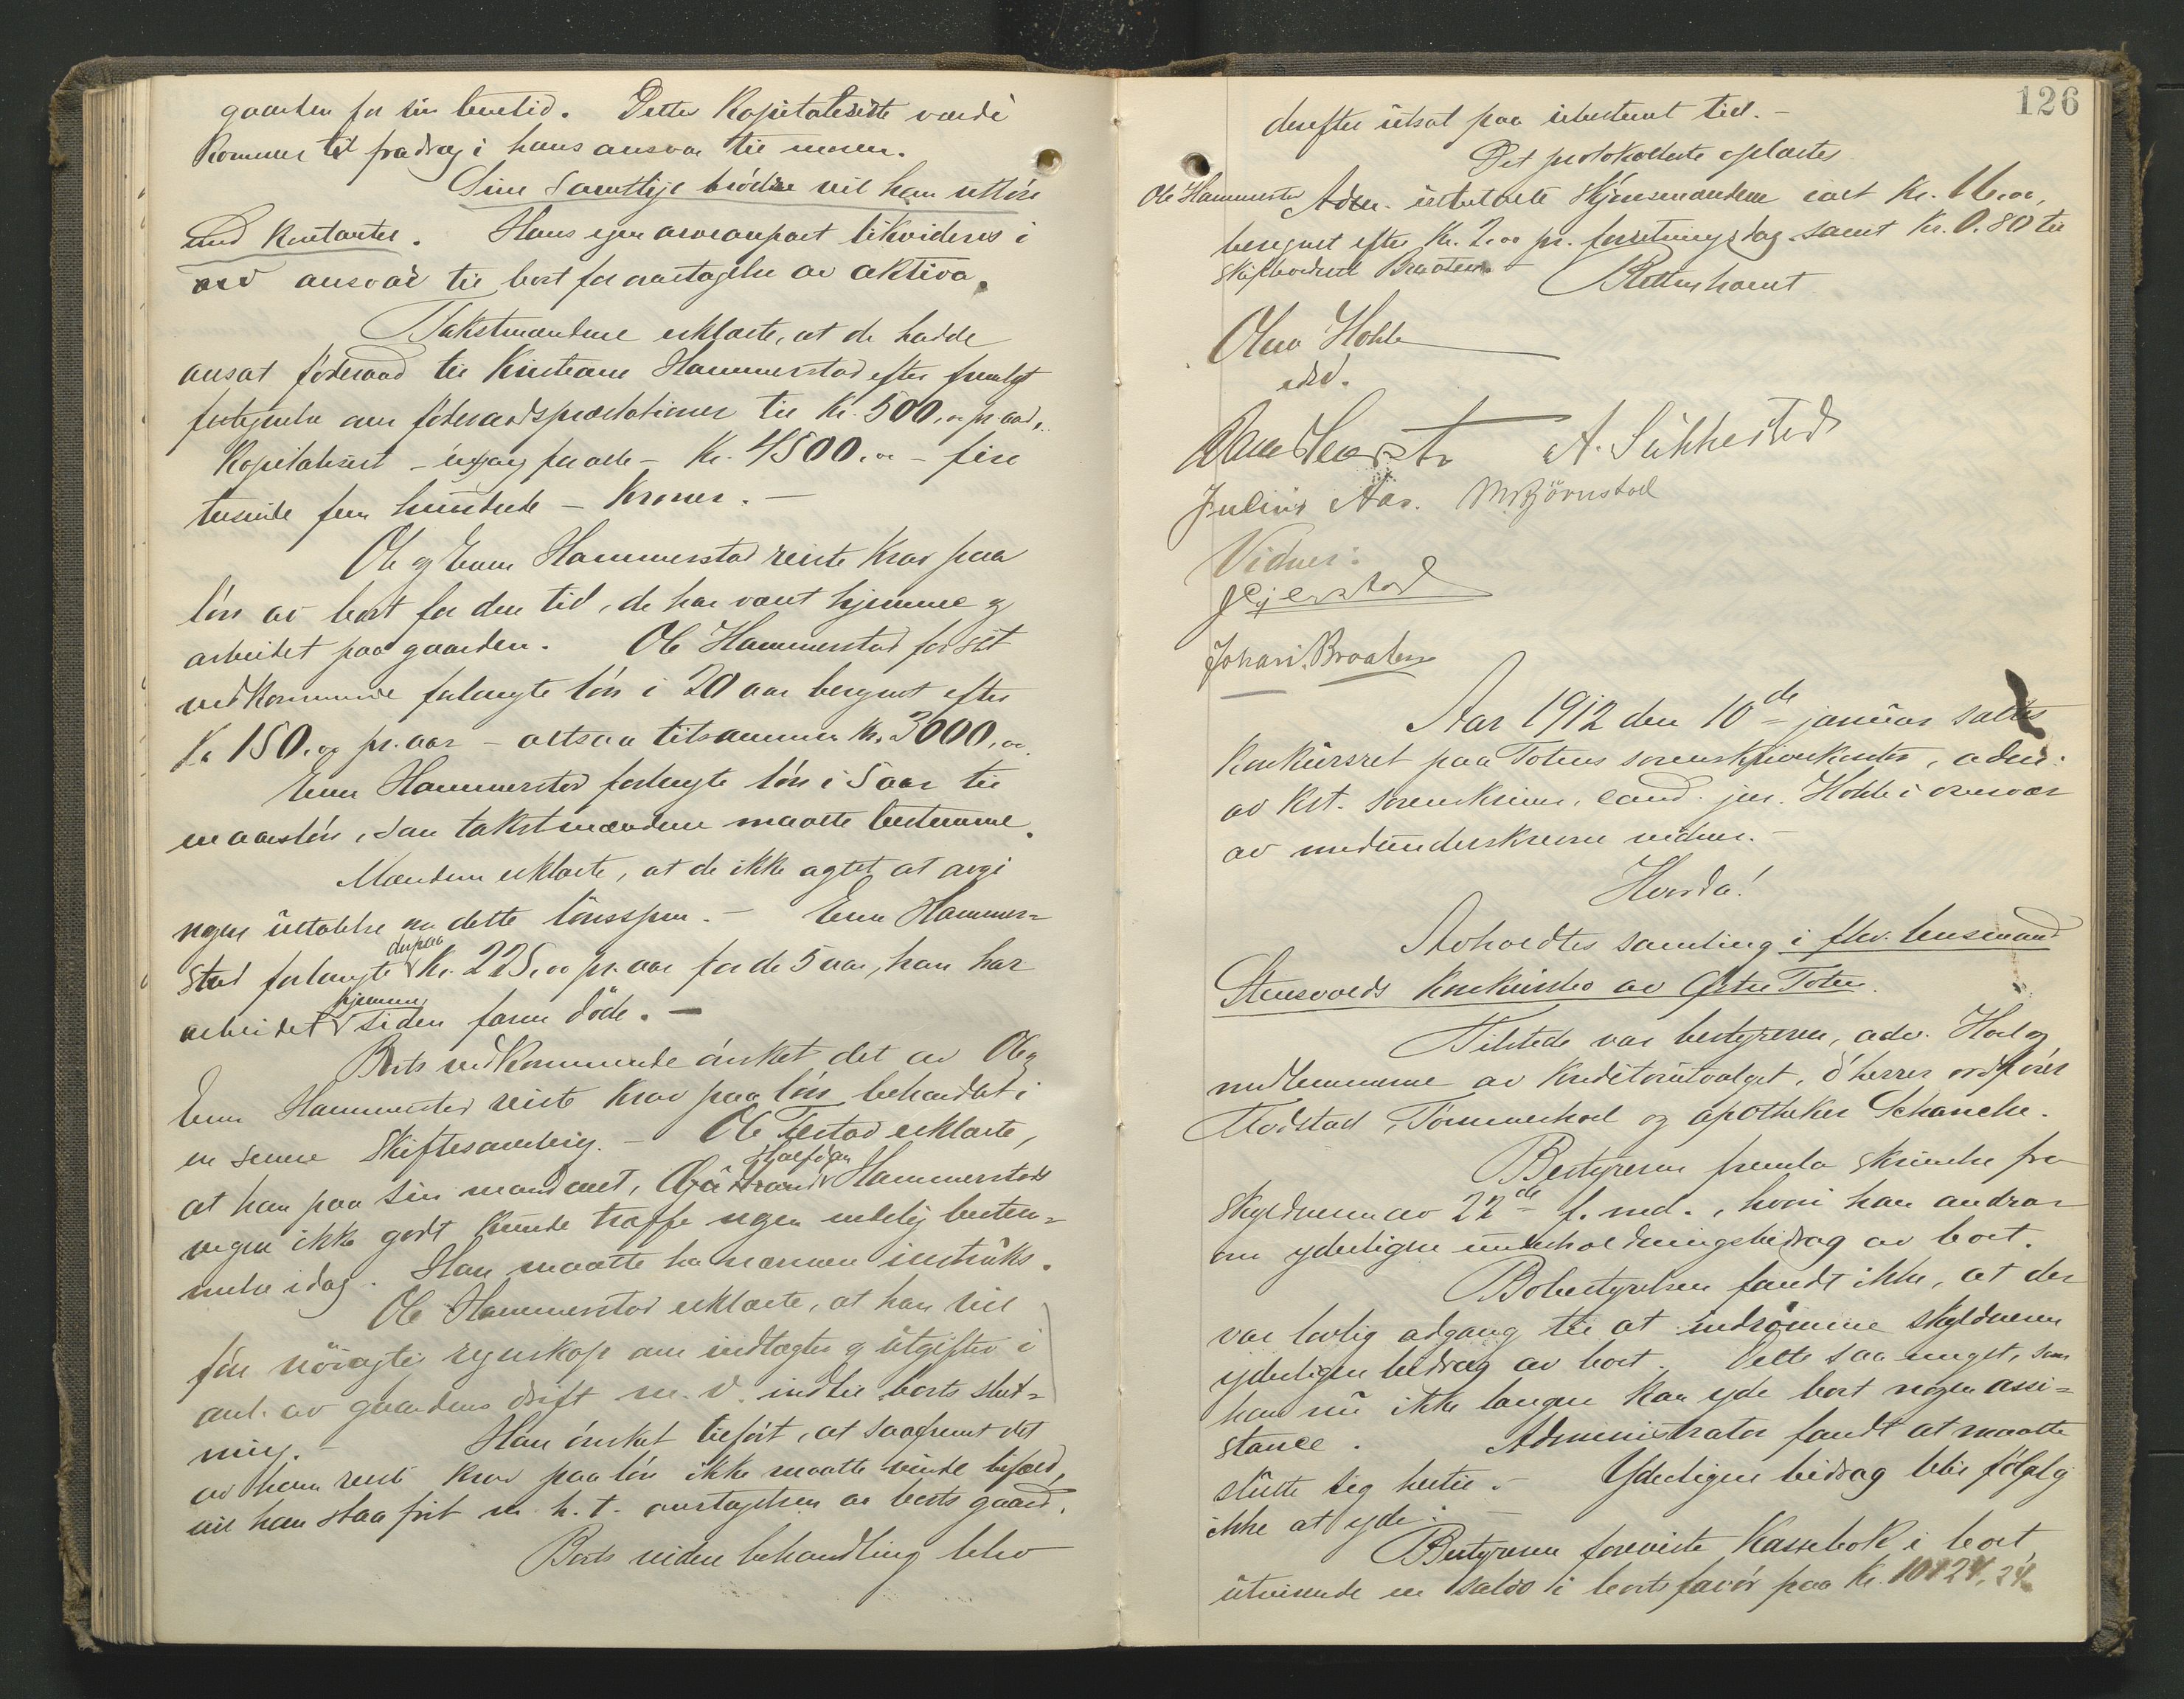 gaarden for sin levetid. Dette kapitaliserte værdi
kommer til fradrag i hans ansvar til massen.
Sine samtlige brødre vil han utløse
med kontanter. Hans egen arveanpart likvideres i
ansvar til boet for overtagelse av aktiva.
Takstmændene erklærte, at de hadde
ansat føderaad til Kristiane Hammerstad efter fremlagt
fortegnelse over føderaadspræstationer til Kr. 500,00 pr. aar,
kapitalisert – engang for alle – Kr. 4500,00 – fire
tusinde fem hundrede – kroner. –
Ole og Even Hammerstad reiste krav paa
løn av boet for den tid, de har været hjemme og
arbeidet paa gaarden. Ole Hammerstad for sit
vedkommende forlangte løn i 20 aar beregnet efter
Kr 150,00 pr. aar – altsaa tilsammen Kr. 3000,00.
Even Hammerstad forlangte løn i 5 aar til
en aarsløn, som takstmændene maatte bestemme.
Mændene erklærte, at de ikke agtet at avgi
nogen uttalelse om dette lønsspm. – Even Hammer=
stad forlangte derpaa Kr. 225,00 pr. aar for de 5 aar, han har
arbeidet hjemme siden faren døde. –
Boets vedkommende ønsket det av Ole og
Even Hammerstad reiste krav paa løn behandlet i
en senere skiftesamling. – Ole Festad erklærte,
at han paa sin mandant, Halfdan Hammerstads
vegne ikke godt kunde træffe nogen endelig bestem=
melse idag. Han maatte ha nærmere instruks.
Ole Hammerstad erklærte, at han vil
føre nøiagtig regnskap over indtægter og utgifter i
anl. av gaardens drift m. v. indtil boets slut=
ning. – Han ønsket tilført, at saafremt det
av ham reiste krav paa løn ikke maatte vinde bifald,
vil han staa frit m. h. t. overtagelsen av boets gaard.
Boets videre behandling blev
126
derefter utsat paa ubestemt tid. –
Det protokollerte oplæstes.
Ole Hammerstad Adm. utbetalte skjønsmændene ialt Kr. 16,00,
beregnet efter Kr. 2,00 pr. forretningsdag samt Kr. 0.80 til
Braaten. – Retten hævet
Olav Hohle
edsv.
A. Sukkestad
Julius Aas. M Bjørnstad
Vidner:
J Gjerstad
Johan Braaten
Aar 1912 den 10de januar sattes
konkursret paa Totens sorenskriverkontor, adm.
av kst. sorenskriver, cand. jur. Hohle i overvær
av medunderskrevne vidner. –
Hvorda!
Avholdtes samling i fhv. lensmand
Stensvolds konkursbo av Østre Toten.
Tilstede var bestyreren, adv. Hoel og
medlemmerne av kreditorutvalget, d'herrer ordfører
Flodstad, Tømmerhoel og apotheker Schanche.
Bestyreren fremla skrivelse fra
skyldneren av 22de f. md., hvori han androar
om yderligere underholdningsbidrag av boet.
Bobestyrelsen fandt ikke, at der
var lovlig adgang til at indrømme skyldneren
yderligere bidrag av boet. Dette saa meget, som
han nu ikke længer kan yde boet nogen assi=
stance. Administrator fandt at maatte
slutte sig hertil. – Yderligere bidrag blir følgelig
ikke at yde. –
Bestyreren foreviste kassebok i boet,
utvisende en saldo i boets favør paa Kr. 10124,24.